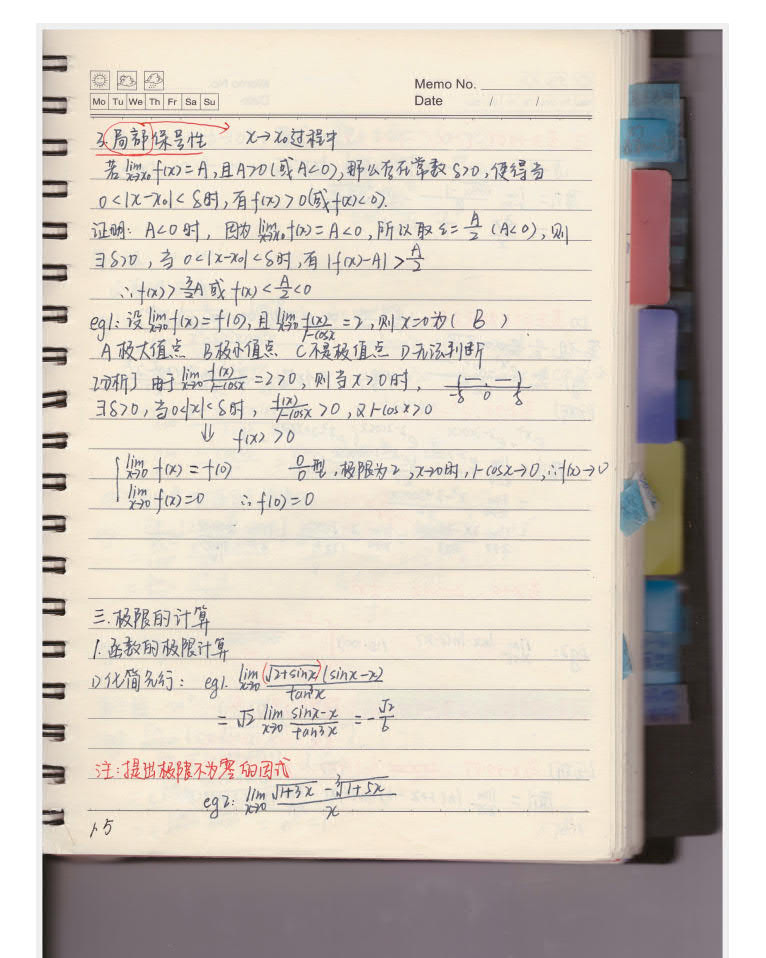 Memo No.
Mo Tu We Th Fr Sa Su
Date / /
3.局部保号性 x→x₀过程中
若lim x→x₀ f(x)=A,且A>0(或A<0),那么存在常数δ>0,使得当
0<|x-x₀|<δ时,有f(x)>0(或f(x)<0).
证明: A<0时, 因为lim x→x₀ f(x)=A<0,所以取ε=A/2 (A<0),则
∃δ>0,当0<|x-x₀|<δ时,有|f(x)-A|>A/2
∴f(x)>3/2A或f(x)<A/2<0
eg1:设lim x→0 f(x)=f(0),且lim x→0 f(x)/1-cosx=2,则x=0为( B )
A极大值点 B极小值点 C不是极值点 D无法判断
[分析]由于lim x→0 f(x)/1-cosx=2>0,则当x>0时, (-,-) -δ 0 δ
∃δ>0,当0<|x|<δ时, f(x)/1-cosx>0,又1-cosx>0
⇓ f(x)>0
lim x→0 f(x)=f(0) 0/0型,极限为2,x→0时,1-cosx→0,∴f(x)→0
lim x→0 f(x)=0 ∴f(0)=0
三.极限的计算
1.函数的极限计算
1)化简先行: eg1. lim x→0 (√2+sinx)(sinx-x)/tan³x
=√2 lim x→0 sinx-x/tan³x=-√2/6
注:提出极限不为零的因式
eg2: lim x→0 √1+3x-³√1+5x/x
1.5